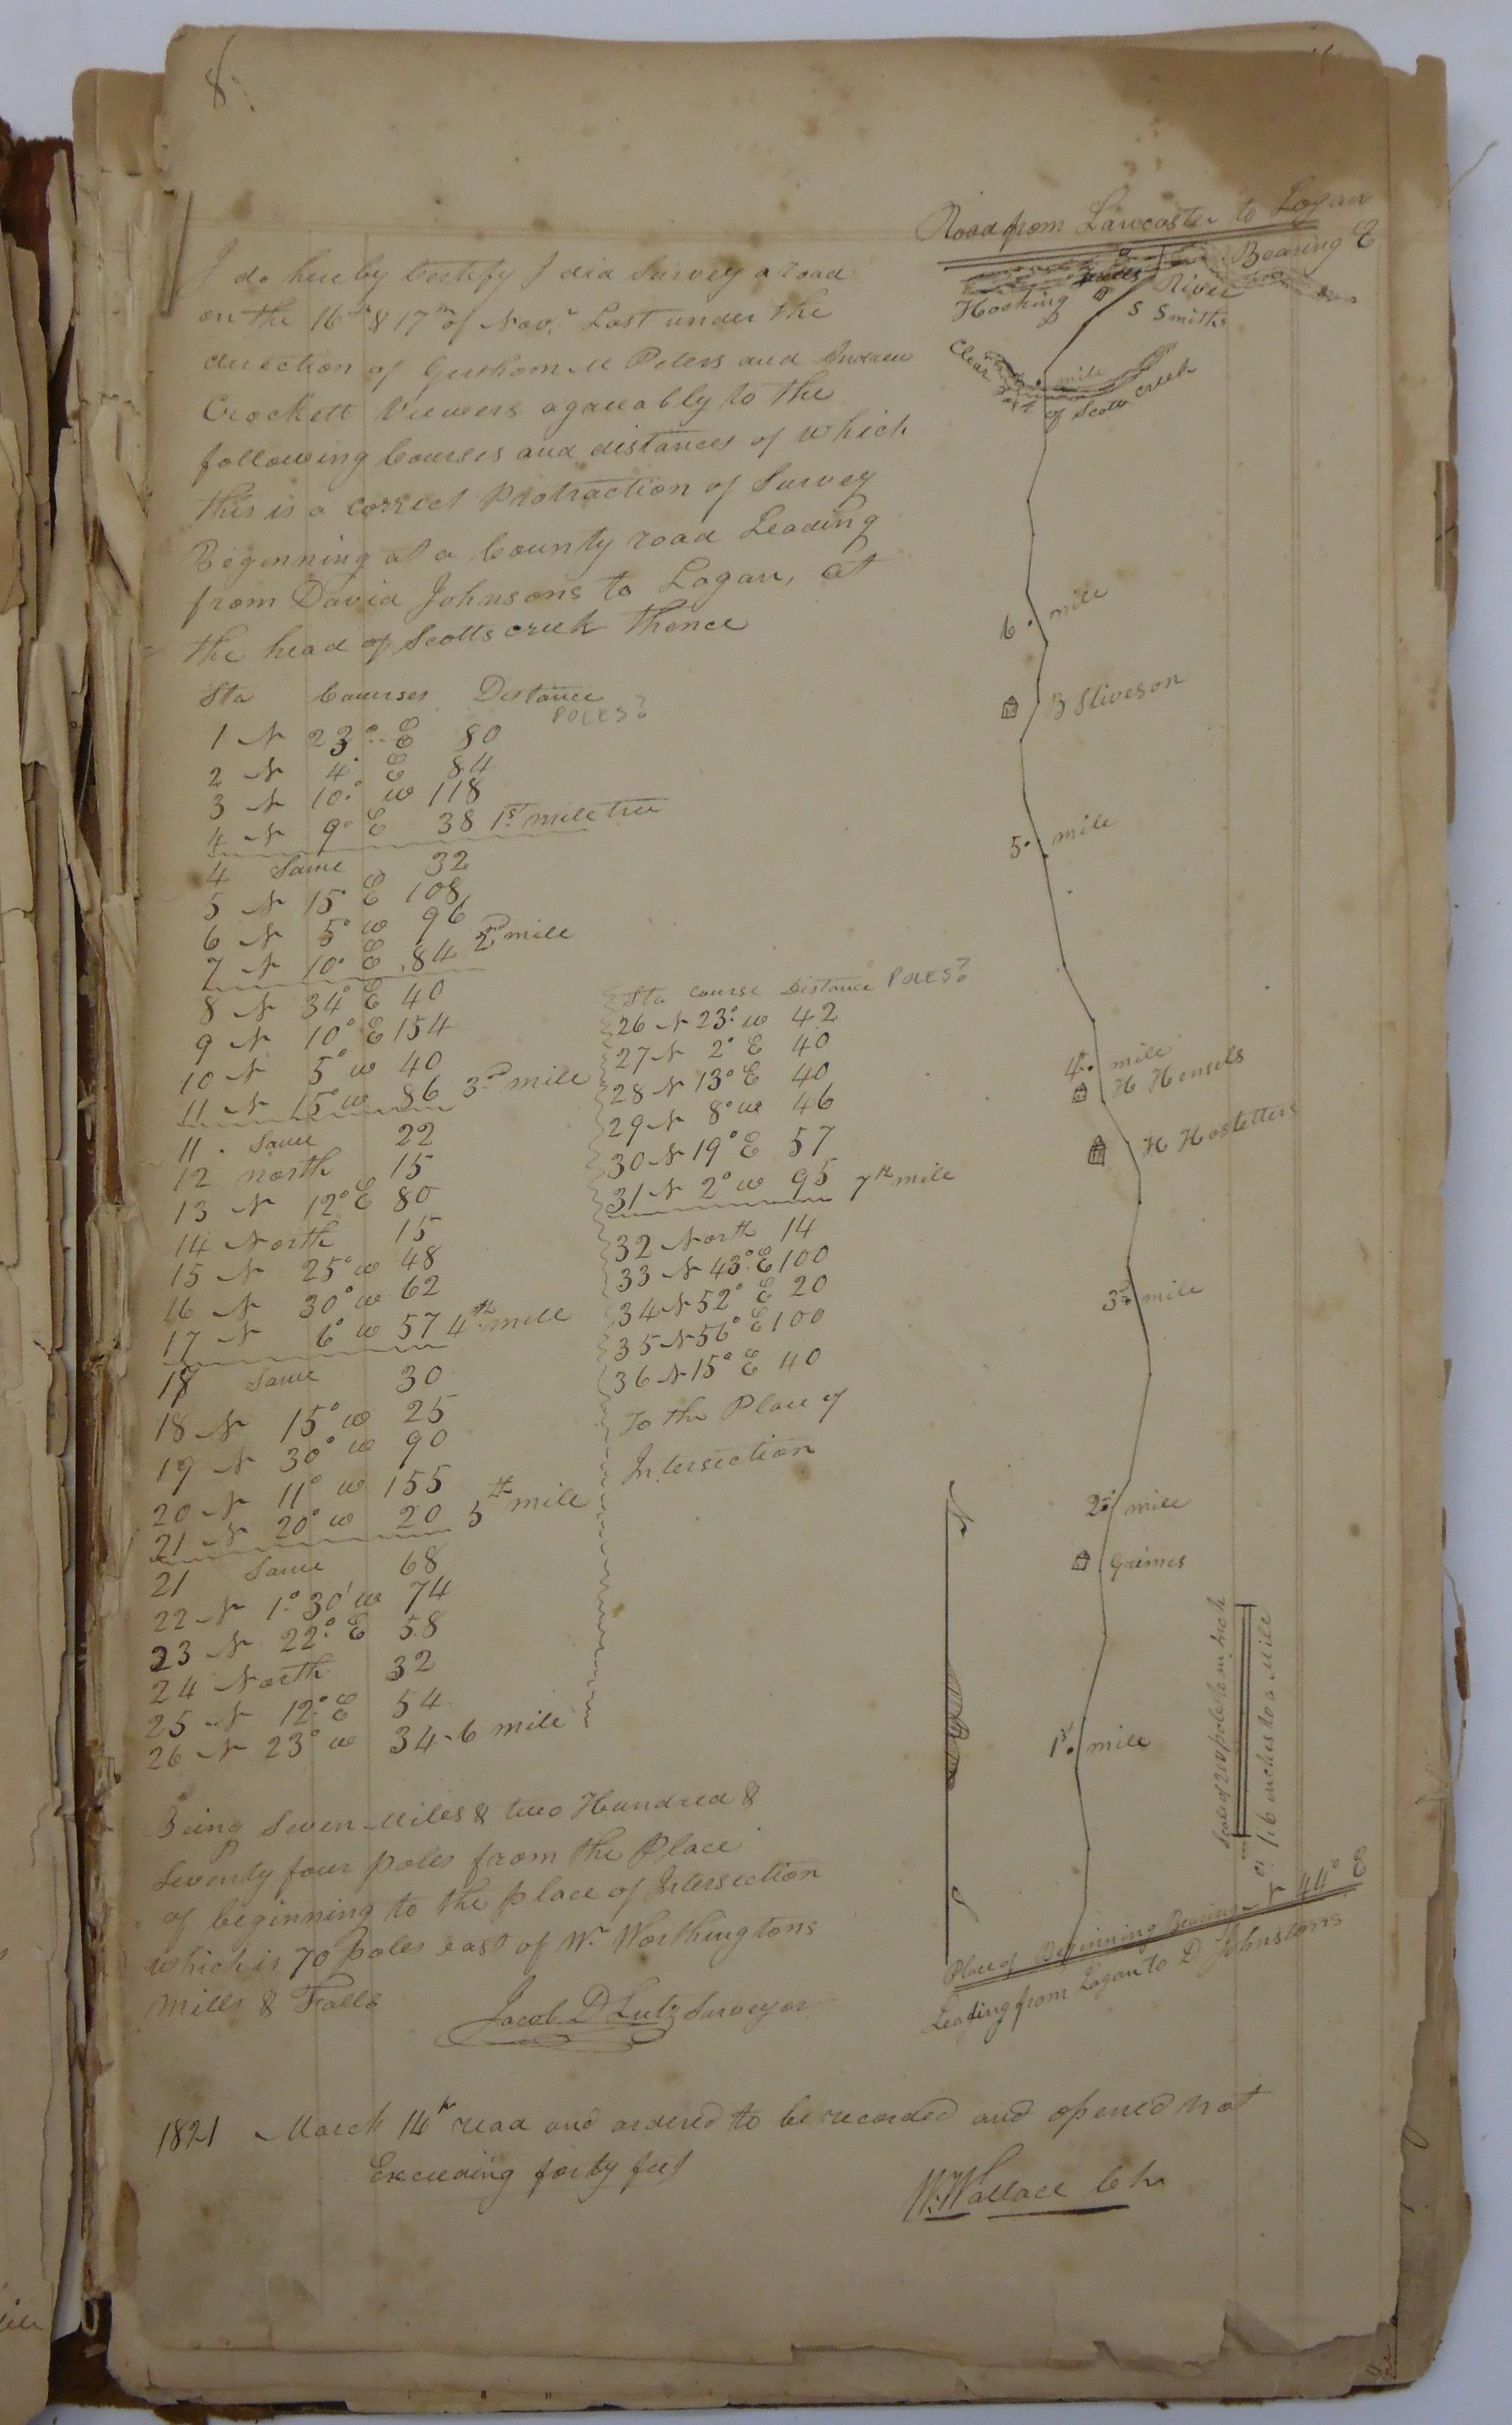 8
I do hereby Certify I did Survey a road
on the 16th & 17th of Novr Last under the
direction of Gershom M Peters and Andrew
Crockett Viewers agaueably to the
following Courses and distances of which
this is a correct Protraction of Survey
Beginning at a County road Leading
from David Johnsons to Logan, at
the head of Scotts creek Thence
Sta Courses Distance
POLES?
1 N 23° E 80
2 N 4° E 84
3 N 10° W 118
4 N 9° E 38 1st mile tree
4 Same 32
5 N 15° E 108
6 N 5° W 96
7 N 10° E 84 2d mile
8 N 34° E 40
9 N 10° E 154
10 N 5° W 40
11 N 15° W 86 3d mile
11 Same 22
12 North 15
13 N 12° E 80
14 North 15
15 N 25° W 48
16 N 30° W 62
17 N 6° W 57 4th mile
17 Same 30
18 N 15° W 25
19 N 30° W 90
20 N 11° W 155
21 N 20° W 20 5th mile
21 Same 68
22 N 1° 30' W 74
23 N 22° E 58
24 North 32
25 N 12° E 54
26 N 23° W 34 - 6 mile
Sta Course Distance POLES?
26 N 23° W 42
27 N 2° E 40
28 N 13° E 40
29 N 8° W 46
30 N 19° E 57
31 N 2° W 95 7th mile
32 North 14
33 N 43° E 100
34 N 52° E 20
35 N 56° E 100
36 N 15° E 40
To the Place of
Intersection
Being Seven Miles & two Hundred &
Seventy four poles from the Place
of beginning to the place of Intersection
which is 70 poles east of W. Worthingtons
Mills & Falls
Jacob D Lutz Surveyor
1821 March 14th read and ordered to be recorded and opened not
Exceeding forty feet
W. Wallace Clk
Road from Lancaster to Logan
Bearing E
Hocking River
S Smiths
Clear
mile
of Scotts creek
6 mile
B Stiveson
5 mile
4 mile
H Hensels
H Hostetters
3d mile
2d mile
Grimes
1st mile
N
S
Scale of 200 poles to an Inch
or 1.6 inches to a Mile
Place of Beginning Bearing N 44° E
Leading from Logan to D Johnstons